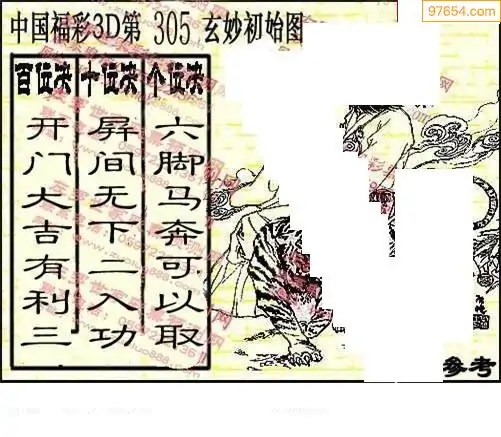 97654.com
中国福彩3D第 305 玄妙初始图
百位决 十位决 个位决
开门大吉有利三
屏间无下二入功
六脚马奔可以取
参考